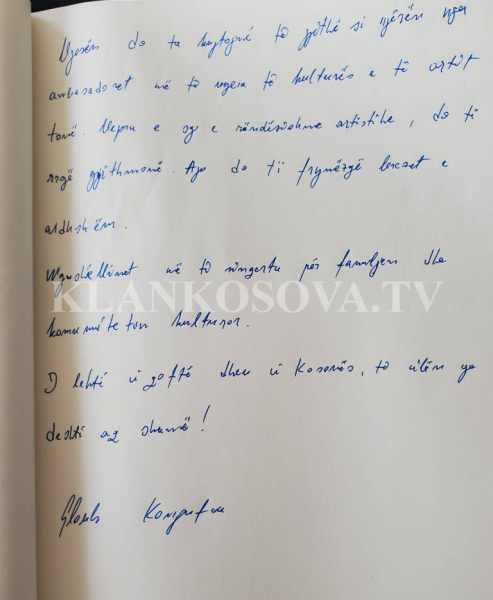 do ta kujtojmë të gjithë si njërën nga
ambasadoret më të mëdha të kulturës e të artit
tonë. Vepra e saj e rëndësishme artistike, do të
rrojë gjithmonë. Ajo do t'i frymëzojë brezat e
ardhshëm.
Ngushëllimet më të singerta për familjen dhe
komunitetin kulturor.
KLANKOSOVA.TV
I lehtë i qoftë dheu i Kosovës, të cilën ga
deshti aq shumë!